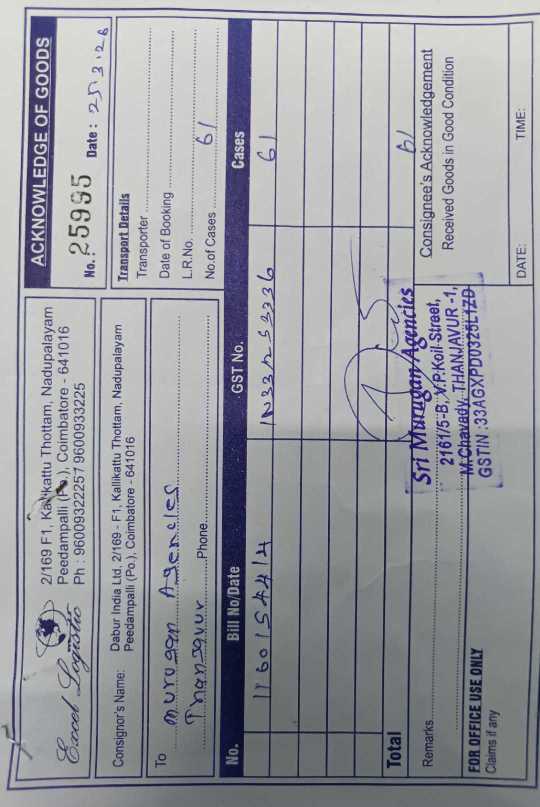 Excel Logistic
2/169 F1, Kallikattu Thottam, Nadupalayam
Peedampalli (Po.), Coimbatore - 641016
Ph : 96009322257 9600933225
ACKNOWLEDGE OF GOODS
No. 25995 Date : 25.3.26
Consignor's Name: Dabur India Ltd, 2/169 - F1, Kallikattu Thottam, Nadupalayam
Peedampalli (Po.), Coimbatore - 641016
To
Murugan Agencies
Thanjavur Phone
Transport Details
Transporter
Date of Booking
L.R.No.
No.of Cases 61
No. Bill No/Date GST No. Cases
1160154414 IN331253336 61
Total 61
Remarks
Sri Murugan Agencies
2161/5-B, V.P.Koil Street,
M.Chavady, THANJAVUR -1,
GSTIN :33AGXPD0325L1ZD
Consignee's Acknowledgement
Received Goods in Good Condition
FOR OFFICE USE ONLY
Claims if any
DATE: TIME: